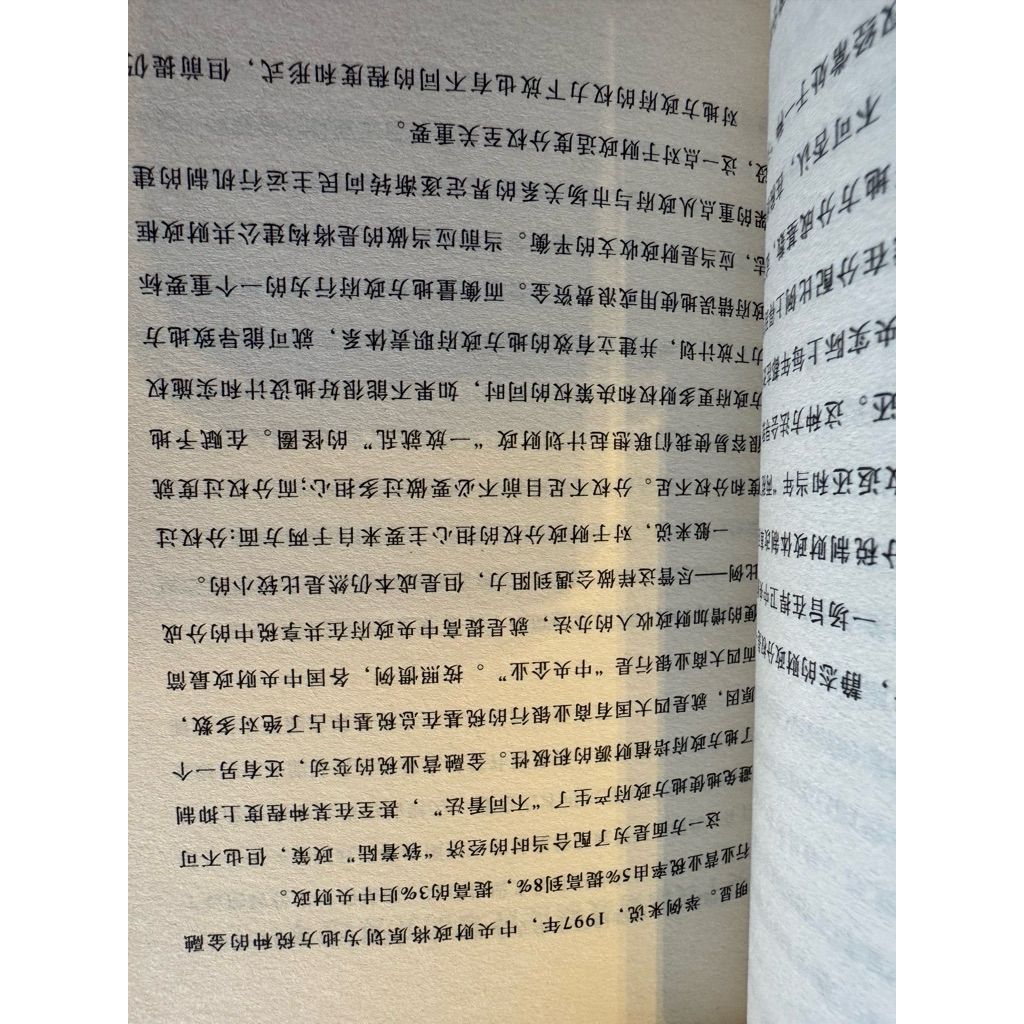 ，静态的财政分权
一场旨在捍卫中
分税制财政体制改
返还和当年“两税”
还。这种方法会
央实际上每年都在
在分配比例上
地方分成基数，
不可否认，
权经常处于一种
明显。举例来说，1997年，中央财政将原划为地方税种的金融
行业营业税率由5%提高到8%，提高的3%归中央财政。
这一方面是为了配合当时的经济“软着陆”政策，但也不可
避免地使地方政府产生了“不同看法”，甚至在某种程度上抑制
了地方政府培植财源的积极性。金融营业税的变动，还有另一个
原因，就是四大国有商业银行的税基在总税基中占了绝对多数，
而四大商业银行是“中央企业”。按照惯例，各国中央财政最简
便的增加财政收入的办法，就是提高中央政府在共享税中的分成
比例——尽管这样做会遇到阻力，但是成本仍然是比较小的。
一般来说，对于财政分权的担心主要来自于两方面：分权过
度和分权不足。分权不足目前不必要做过多担心；而分权过度就
很容易使我们联想起计划财政“一放就乱”的怪圈。在赋予地
方政府更多财权和决策权的同时，如果不能很好地设计和实施权
力下放计划，并建立有效的地方政府职责体系，就可能导致地方
政府错误地使用或浪费资金。而衡量地方政府行为的一个重要标
志，应当是财政收支的平衡。当前应当做的是将构建公共财政框
架的重点从政府与市场关系的界定逐渐转向民主运行机制的建
设，这一点对于财政适度分权至关重要。
对地方政府的权力下放也有不同的程度和形式，但前提仍